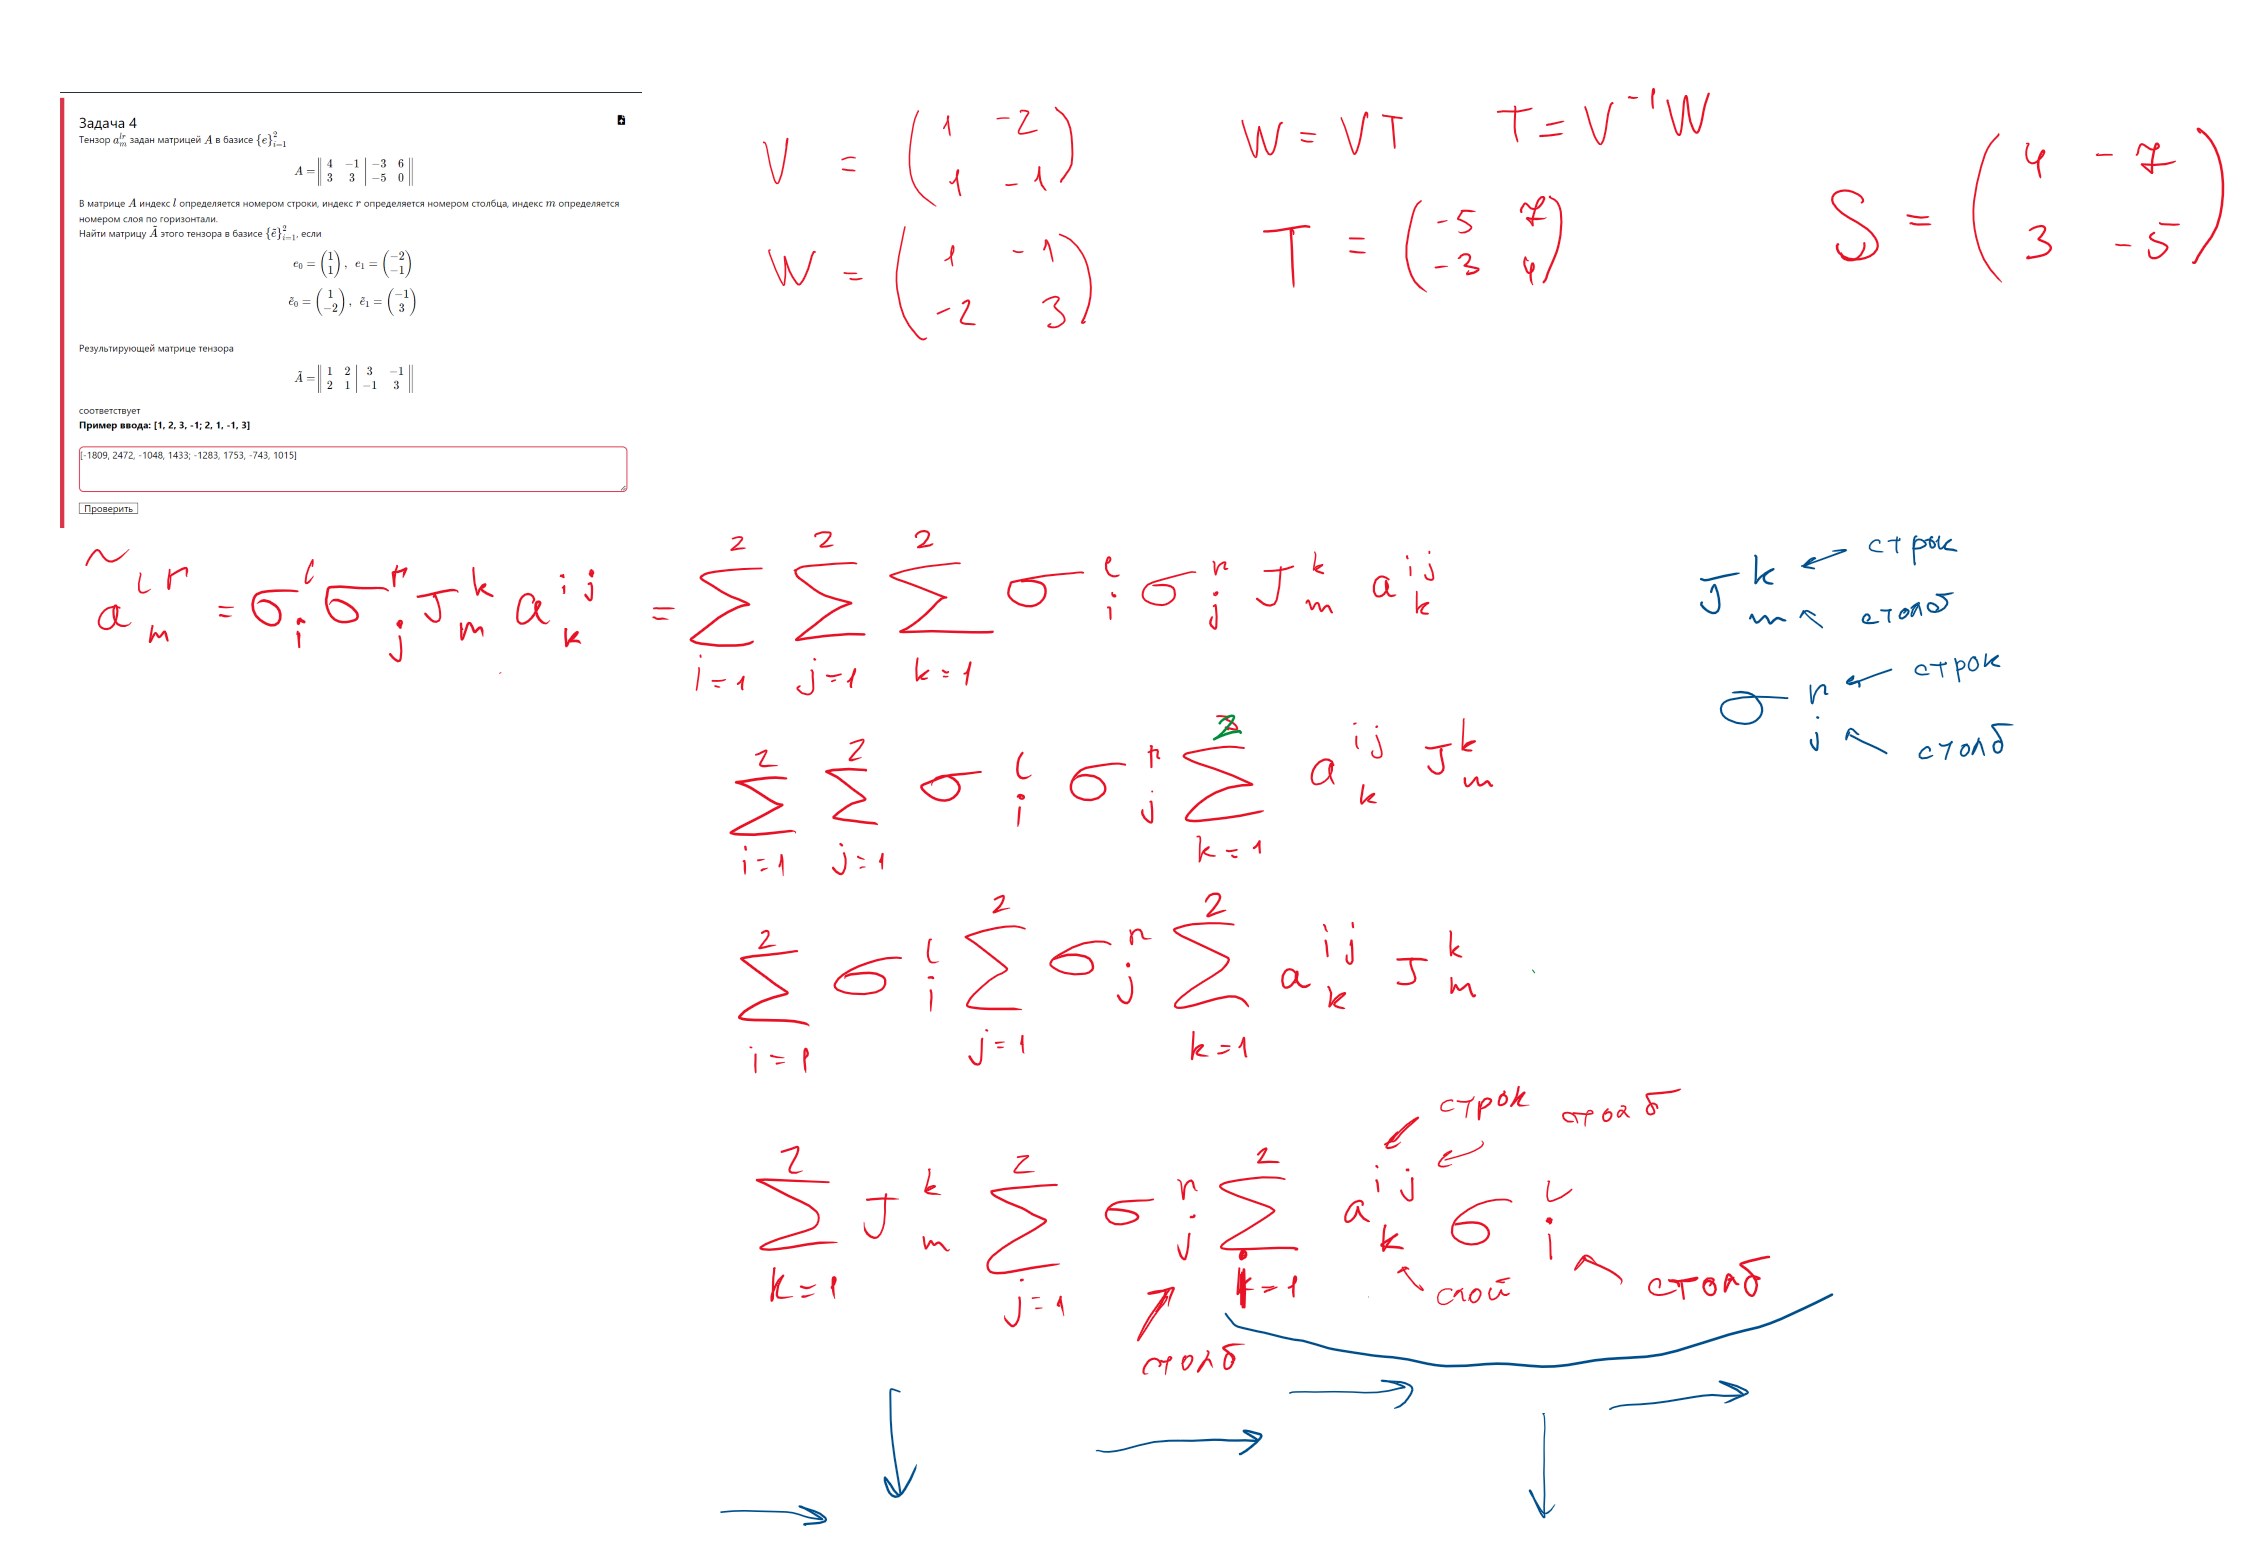 Задача 4
Тензор a_m^{lr} задан матрицей A в базисе {e}_{i=1}^2
A = ‖ 4 −1 | −3 6 ‖
‖ 3 3 | −5 0 ‖
В матрице A индекс l определяется номером строки, индекс r определяется номером столбца, индекс m определяется
номером слоя по горизонтали.
Найти матрицу Ã этого тензора в базисе {ẽ}_{i=1}^2, если
e_0 = (1 1), e_1 = (−2 −1)
ẽ_0 = (1 −2), ẽ_1 = (−1 3)
Результирующей матрице тензора
Ã = ‖ 1 2 | 3 −1 ‖
‖ 2 1 | −1 3 ‖
соответствует
Пример ввода: [1, 2, 3, -1; 2, 1, -1, 3]
[-1809, 2472, -1048, 1433; -1283, 1753, -743, 1015]
Проверить
V = ( 1 -2
1 -1 )
W = ( 1 -1
-2 3 )
W = VT T = V^{-1} W
T = ( -5 7
-3 4 )
S = ( 4 -7
3 -5 )
ã^{lr}_m = σ^l_i σ^r_j J^k_m a^{ij}_k = Σ_{i=1}^2 Σ_{j=1}^2 Σ_{k=1}^2 σ^l_i σ^r_j J^k_m a^{ij}_k
J^k_m строк
столб
σ^r_j строк
столб
Σ_{i=1}^2 Σ_{j=1}^2 σ^l_i σ^r_j Σ_{k=1}^2 a^{ij}_k J^k_m
Σ_{i=1}^2 σ^l_i Σ_{j=1}^2 σ^r_j Σ_{k=1}^2 a^{ij}_k J^k_m
строк столб
Σ_{k=1}^2 J^k_m Σ_{j=1}^2 σ^r_j Σ_{i=1}^2 a^{ij}_k σ^l_i
слой столб
столб